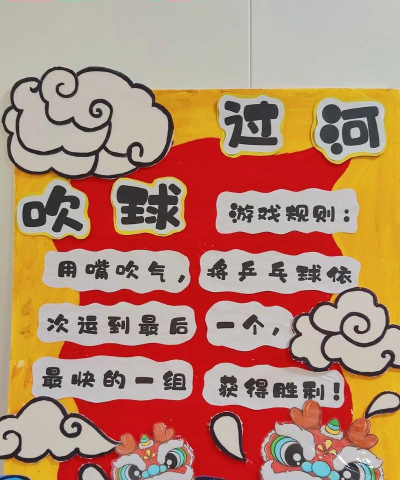 过河
吹球 游戏规则：
用嘴吹气，将乒乓球依
次运到最后一个，
最快的一组获得胜利！